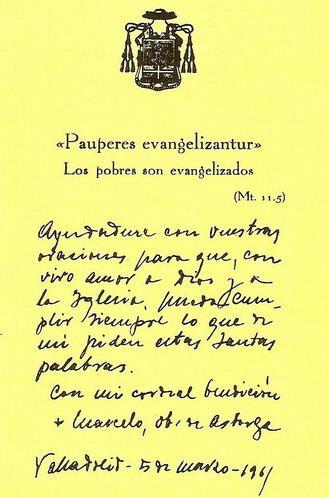 «Pauperes evangelizantur»
Los pobres son evangelizados
(Mt. 11.5)
Ayudadme con vuestras
oraciones para que, con
vivo amor a Dios y a
la Iglesia, pueda cum-
plir siempre lo que de
mi piden estas santas
palabras.
Con mi cordial bendición
+ Marcelo, ob. de Astorga
Valladolid - 5 de marzo - 1961